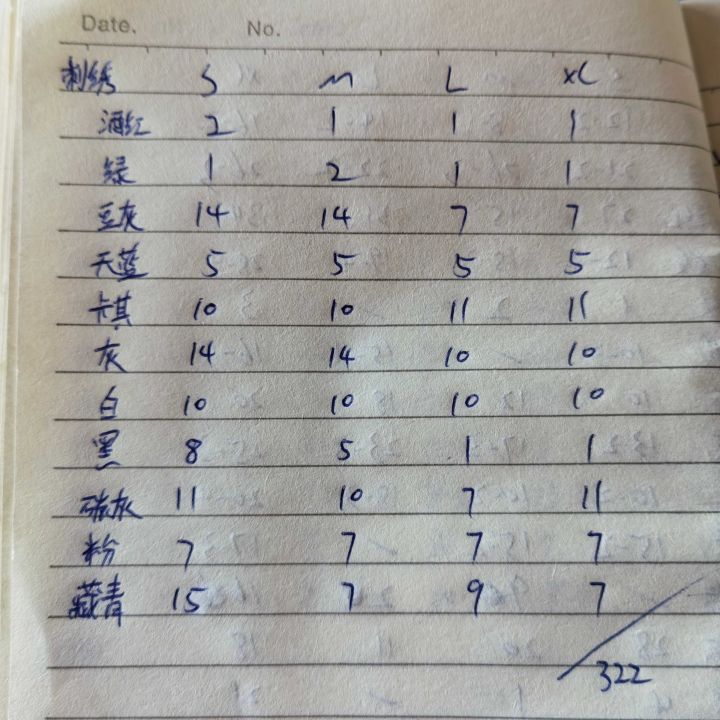 Date. No.
刺绣 S M L XL
酒红 2 1 1 1
绿 1 2 1 1
豆灰 14 14 7 7
天蓝 5 5 5 5
卡其 10 10 11 11
灰 14 14 10 10
白 10 10 10 10
黑 8 5 1 1
碳灰 11 10 7 11
粉 7 7 7 7
藏青 15 7 9 7
322